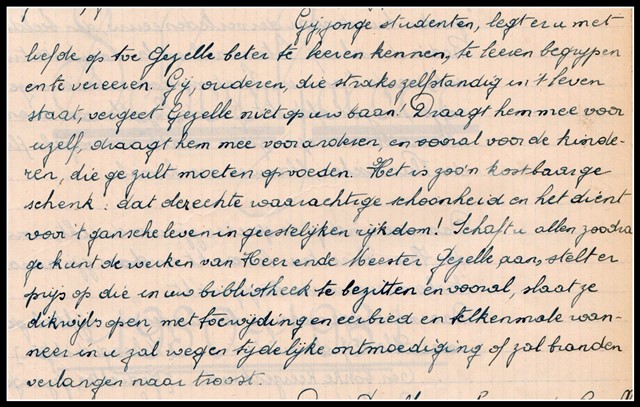 Gij jonge studenten, legt er u met
liefde op toe Gezelle beter te leeren kennen, te leeren begrijpen
en te vereeren. Gij, ouderen, die straks zelfstandig in 't leven
staat, vergeet Gezelle niet op uw baan! Draagt hem mee voor
uzelf, draagt hem mee voor anderen, en vooral voor de kinde-
ren, die ge zult moeten opvoeden. Het is zoo'n kostbaar ge
schenk: dat der echte waarachtige schoonheid en het dient
voor 't gansche leven in geestelijken rijkdom! Schaft u allen zoodra
ge kunt de werken van Heer ende Meester Gezelle aan, stelt er
prijs op die in uw bibliotheek te bezitten en vooral, slaat ze
dikwijls open, met toewijding en eerbied en telkenmale wan-
neer in u zal wegen tijdelijke ontmoediging of zal branden
verlangen naar troost.